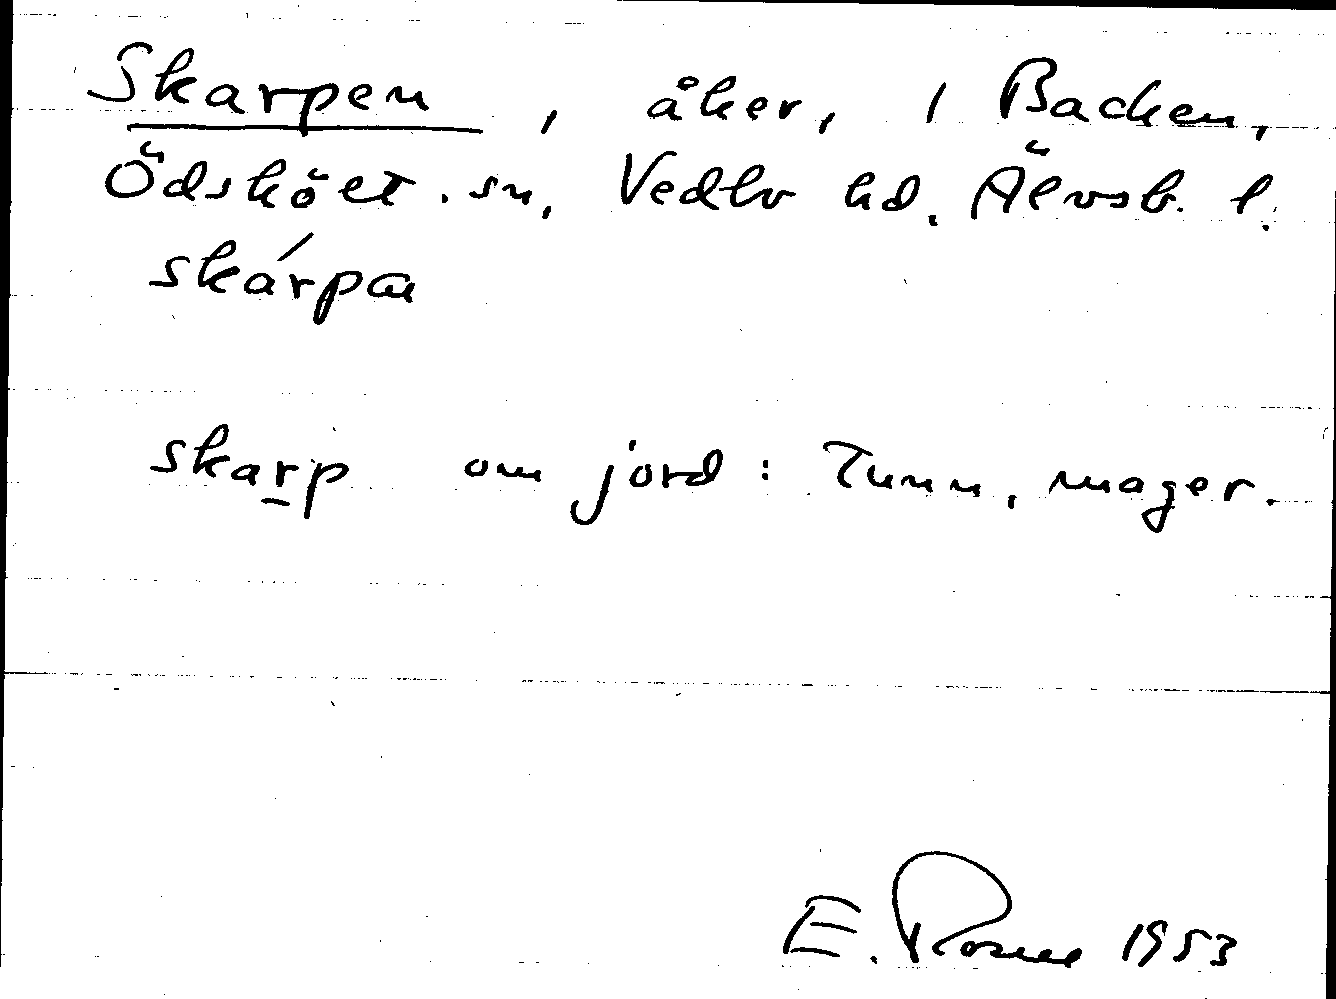 Skarpen, åker, 1 Backen,
Ödsköet. sn, Vedbo hd. Älvsb. l.
skárpan
skarp om jord: Tunn, mager.
E. Rosell 1953